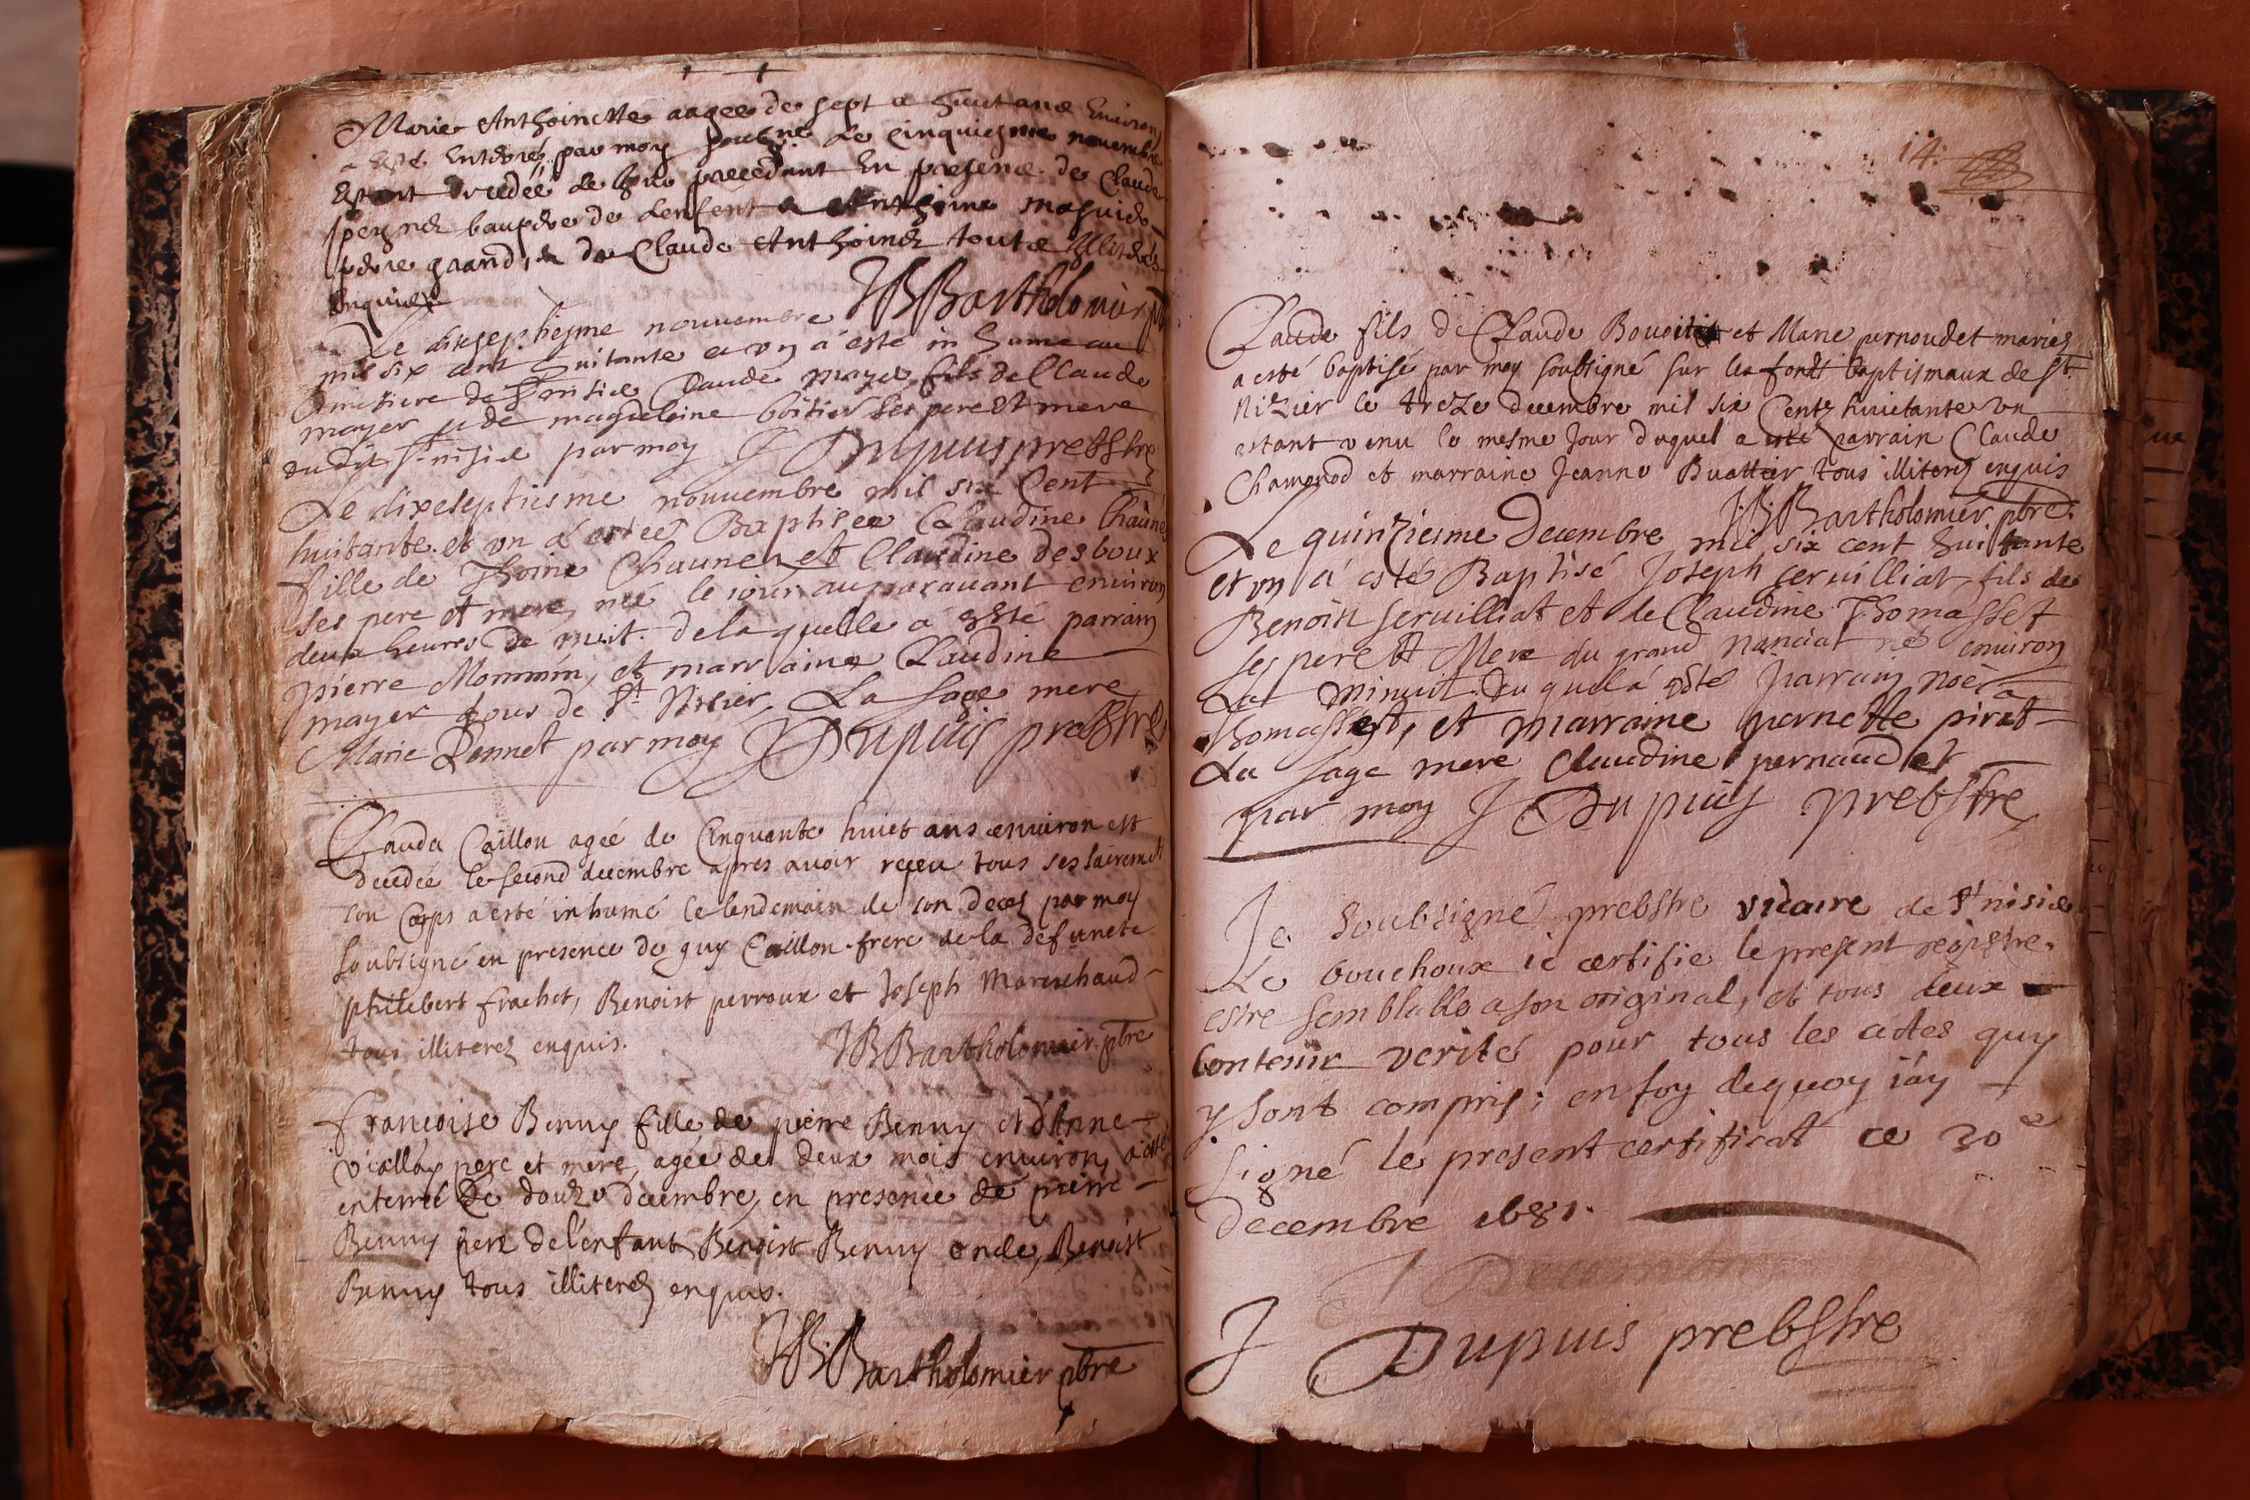 Marie Anthoinette aagee de sept a huict ans Environ
a Esté Enterré par moy soubsigné Le cinquiesme nouembre
Estant decedée le jour precedant En presence de Claude
beaupere de Lenfant &
pere grand, & de Claude Anthoinez tous Illiteres
Enquis
JB Bartholomier pbre
Le diseptiesme nouuembre
mil six cent huitante et vn á esté in humé au
Cimetiere de St nisié Claude mayer fils de Claude
mayer et de magueleine boitier ses pere et mere
dudit St nisié par moy J Dupuis prebstre
Le dixeseptiesme nouuembre mil six Cent
huitante et vn á estée Baptisee Claudine Chaunez
fille de Thoine Chaunez et Claudine desboux
ses pere et mere, neé le iour auparauant environ
deux heures de nuit. de la quelle a esté parrain
pierre Mommin, et marraine Claudine
mayer tous de St Nisier. La sage mere
Marie Donnet par moy J Dupuis prebstre
Clauda Caillon ageé de Cinquante huict ans environ est
decedée le second decembre apres auoir reçeu tous ses sacrements
son Corps a esté inhumé le lendemain de son deces par moy
soubsigné en presence de guy Caillon frere de la defuncte
philibert frachet, Benoist perroux et Joseph Mareschaud
tous illiterez enquis.
JB Bartholomier pbre
francoise Benny fille de pierre Benny et d'Anne
Viallay pere et mere, agée de deux mois environ, a esté
enterreé Le douze decembre, en presence de pierre
Benny pere de l'enfant, Benoist Benny oncle, Benoist
Benny tous illiterez enquis.
JB Bartholomier pbre
14.
Claude fils de Claude Bouoitier et Marie pernoudet mariez
a esté baptisé par moy soubsigné sur les fonds baptismaux de St
Nizier le treze decembre mil six Centz huictante vn
estant venu le mesme Jour duquel a esté parrain Claude
Chamonod et marraine Jeanne Buattier tous illiterez enquis
J.B. Bartholomier pbre.
Le quinziesme Decembre mil six cent huitante
et vn á esté Baptisé Joseph seruilliat fils de
Benoin seruilliat et de Claudine Thomasset
ses pere et Mere du grand nanciat né environ
La minuit. Du quel á esté parrain noël
Thomasset, et marraine pernette pirat
La sage mere Claudine pernaudet
par moy J Dupuis prebstre
Je soubsigné prebstre vicaire de St nisié
Le bouchoux ie certifie le present registre
estre semblable a son original, et tous deux
Contenir verité pour tous les actes quy
y sont compris; en foy de quoy i'ay
signé le present certificat ce 30e
decembre 1681.
J Dupuis prebstre